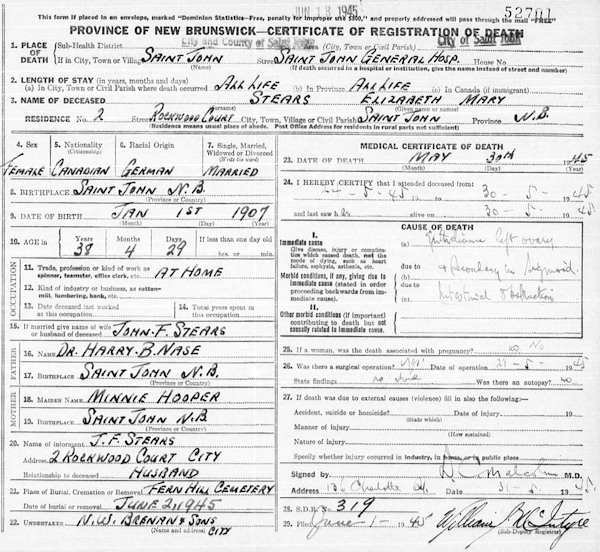 This form if placed in an envelope, marked "Dominion Statistics—Free, penalty for improper use $300," and properly addressed will pass through the mail "FREE"
JUN 18 1945 52701
PROVINCE OF NEW BRUNSWICK—CERTIFICATE OF REGISTRATION OF DEATH
1. PLACE OF DEATH Sub-Health District City and County of Saint John Area (City, Town or Civil Parish) City of Saint John
If in City, Town or Village SAINT JOHN (Name) Street SAINT JOHN GENERAL HOSP. House No
(If death occurred in a hospital or institution, give the name instead of street and number)
2. LENGTH OF STAY (in years, months and days)
(a) In City, Town or Civil Parish where death occurred ALL LIFE (b) In Province ALL LIFE (c) In Canada (if immigrant)
3. NAME OF DECEASED STEARS (Surname) ELIZABETH MARY (Given names)
RESIDENCE No. 2 Street ROCKWOOD COURT City, Town, Village or Civil Parish SAINT JOHN Province N.B.
(Residence means usual place of abode. Post Office Address for residents in rural parts not sufficient)
4. Sex 5. Nationality (Citizenship) 6. Racial Origin 7. Single, Married, Widowed or Divorced (Write the word)
FEMALE CANADIAN GERMAN MARRIED
8. BIRTHPLACE SAINT JOHN N.B.
(Province or Country)
9. DATE OF BIRTH JAN 1ST 1907
(Month) (Day) (Year)
10. AGE in Years Months Days If less than one day old
38 4 29 hrs. or min.
OCCUPATION
11. Trade, profession or kind of work as spinner, teamster, office clerk, etc. AT HOME
12. Kind of industry or business, as cotton-mill, lumbering, bank, etc.
13. Date deceased last worked at this occupation 14. Total years spent in this occupation
15. If married give name of wife or husband of deceased JOHN. F. STEARS
FATHER
16. NAME DR. HARRY. B. NASE
17. BIRTHPLACE SAINT JOHN N.B.
(Province or Country)
MOTHER
18. MAIDEN NAME MINNIE HOOPER
19. BIRTHPLACE SAINT JOHN N.B.
(Province or Country)
20. Name of informant J. F. STEARS
Address 2 ROCKWOOD COURT CITY
Relationship to deceased HUSBAND
21. Place of Burial, Cremation or Removal FERNHILL CEMETERY
Date of burial or removal JUNE 2, 1945
22. UNDERTAKER N. W. BRENAN & SONS
(Name and address) CITY
MEDICAL CERTIFICATE OF DEATH
23. DATE OF DEATH MAY 30TH 1945
(Month) (Day) (Year)
24. I HEREBY CERTIFY that I attended deceased from:
24-5-45 19 to 30-5-1945
and last saw her alive on 30-5-1945
CAUSE OF DEATH
I.
Immediate cause
(Give disease, injury or complication which caused death, not the mode of dying, such as heart failure, asphyxia, asthenia, etc.
Morbid conditions, if any, giving rise to immediate cause (stated in order proceeding backwards from immediate cause).
II.
Other morbid conditions (if important) contributing to death but not casually related to immediate cause.
(a) left ovary
due to
(b) & secondary in sigmoid
due to
(c) Intestinal obstruction
25. If a woman, was the death associated with pregnancy? No
26. Was there a surgical operation? Date of operation 1945
State findings Was there an autopsy? no
27. If death was due to external causes (violence) fill in also the following:—
Accident, suicide or homicide? Date of injury 19
(State which)
Manner of injury
(How sustained)
Nature of injury
Specify whether injury occurred in industry, in home, or in public place
Signed by Malcolm M.D.
Address 136 Charlotte St. Date 31-5-1945
28. S.D.R. No. 319
29. Filed June 1- 1945 William McIntyre
(Sub-Deputy Registrar)